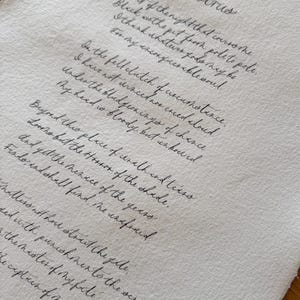 of the night that covers me
Black pit from pole to pole
I thank whatever gods may be
For my unconquerable soul
In the fell clutch of circumstance
I have not winced nor cried aloud
Under the bludgeonings of chance
My head is bloody but unbowed
Beyond this place of wrath and tears
Looms but the Horror of the shade
And yet the menace of the years
Finds and shall find me unafraid
matters not how strait the gate
with punishments the
the master of my fate
captain of